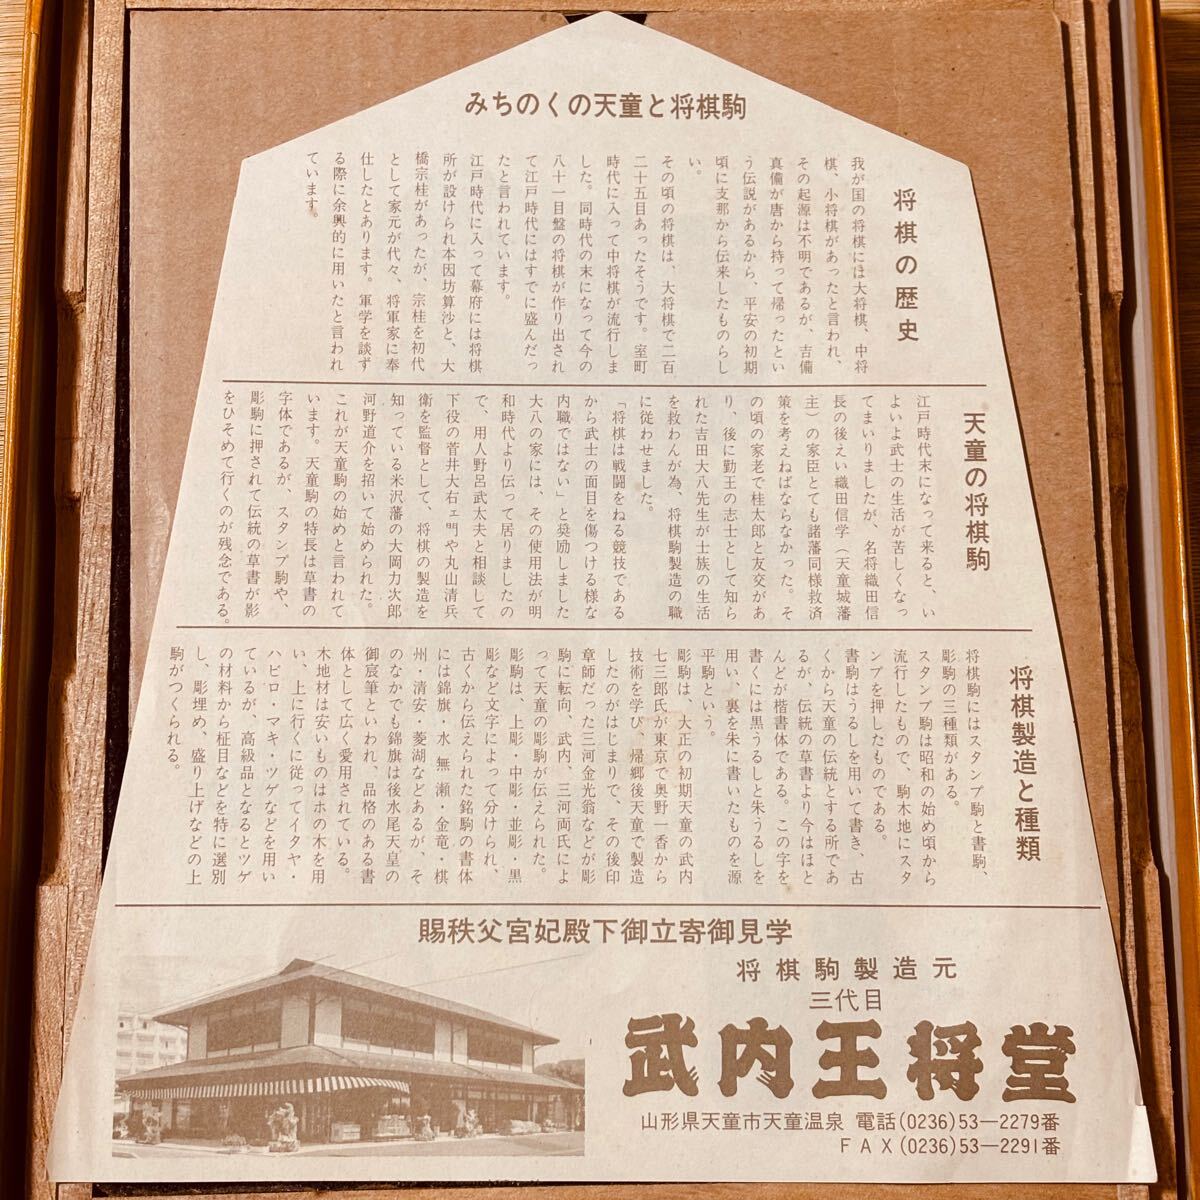 みちのくの天童と将棋駒
将棋の歴史
我が国の将棋には大将棋、中将
棋、小将棋があったと言われ、
その起源は不明であるが、吉備
真備が唐から持って帰ったとい
う伝説があるから、平安の初期
頃に支那から伝来したものらし
い。
その頃の将棋は、大将棋で二百
二十五目あったそうです。室町
時代に入って中将棋が流行しま
した。同時代の末になって今の
八十一目盤の将棋が作り出され
て江戸時代にはすでに盛んだっ
たと言われています。
江戸時代に入って幕府には将棋
所が設けられ本因坊算沙と、大
橋宗桂があったが、宗桂を初代
として家元が代々、将軍家に奉
仕したとあります。軍学を談ず
る際に余興的に用いたと言われ
ています。
天童の将棋駒
江戸時代末になって来ると、い
よいよ武士の生活が苦しくなっ
てまいりましたが、名将織田信
長の後えい織田信学（天童城藩
主）の家臣とても諸藩同様救済
策を考えねばならなかった。そ
の頃の家老で桂太郎と友交があ
り、後に勤王の志士として知ら
れた吉田大八先生が士族の生活
を救わんが為、将棋駒製造の職
に従わせました。
「将棋は戦闘をねる競技である
から武士の面目を傷つける様な
内職ではない」と奨励しました
大八の家には、その使用法が明
和時代より伝って居りましたの
で、用人野呂武太夫と相談して
下役の菅井大右ェ門や丸山清兵
衛を監督として、将棋の製造を
知っている米沢藩の大岡力次郎
河野道介を招いて始められた。
これが天童駒の始めと言われて
います。天童駒の特長は草書の
字体であるが、スタンプ駒や、
彫駒に押されて伝統の草書が影
をひそめて行くのが残念である。
将棋製造と種類
将棋駒にはスタンプ駒と書駒、
彫駒の三種類がある。
スタンプ駒は昭和の始め頃から
流行したもので、駒木地にスタ
ンプを押したものである。
書駒はうるしを用いて書き、古
くから天童の伝統とする所であ
るが、伝統の草書より今はほと
んどが楷書体である。この字を
書くには黒うるしと朱うるしを
用い、裏を朱に書いたものを源
平駒という。
彫駒は、大正の初期天童の武内
七三郎氏が東京で奥野一香から
技術を学び、帰郷後天童で製造
したのがはじまりで、その後印
章師だった三河金光翁などが彫
駒に転向、武内、三河両氏によ
って天童の彫駒が伝えられた。
彫駒は、上彫・中彫・並彫・黒
彫など文字によって分けられ、
古くから伝えられた銘駒の書体
には錦旗・水無瀬・金竜・棋
州・清安・菱湖などあるが、そ
のなかでも錦旗は後水尾天皇の
御宸筆といわれ、品格のある書
体として広く愛用されている。
木地材は安いものはホの木を用
い、上に行くに従ってイタヤ・
ハビロ・マキ・ツゲなどを用い
ているが、高級品となるとツゲ
の材料から柾目などを特に選別
し、彫埋め、盛り上げなどの上
駒がつくられる。
賜秩父宮妃殿下御立寄御見学
将棋駒製造元
三代目
武内王将堂
山形県天童市天童温泉 電話(0236)53―2279番
FAX(0236)53―2291番